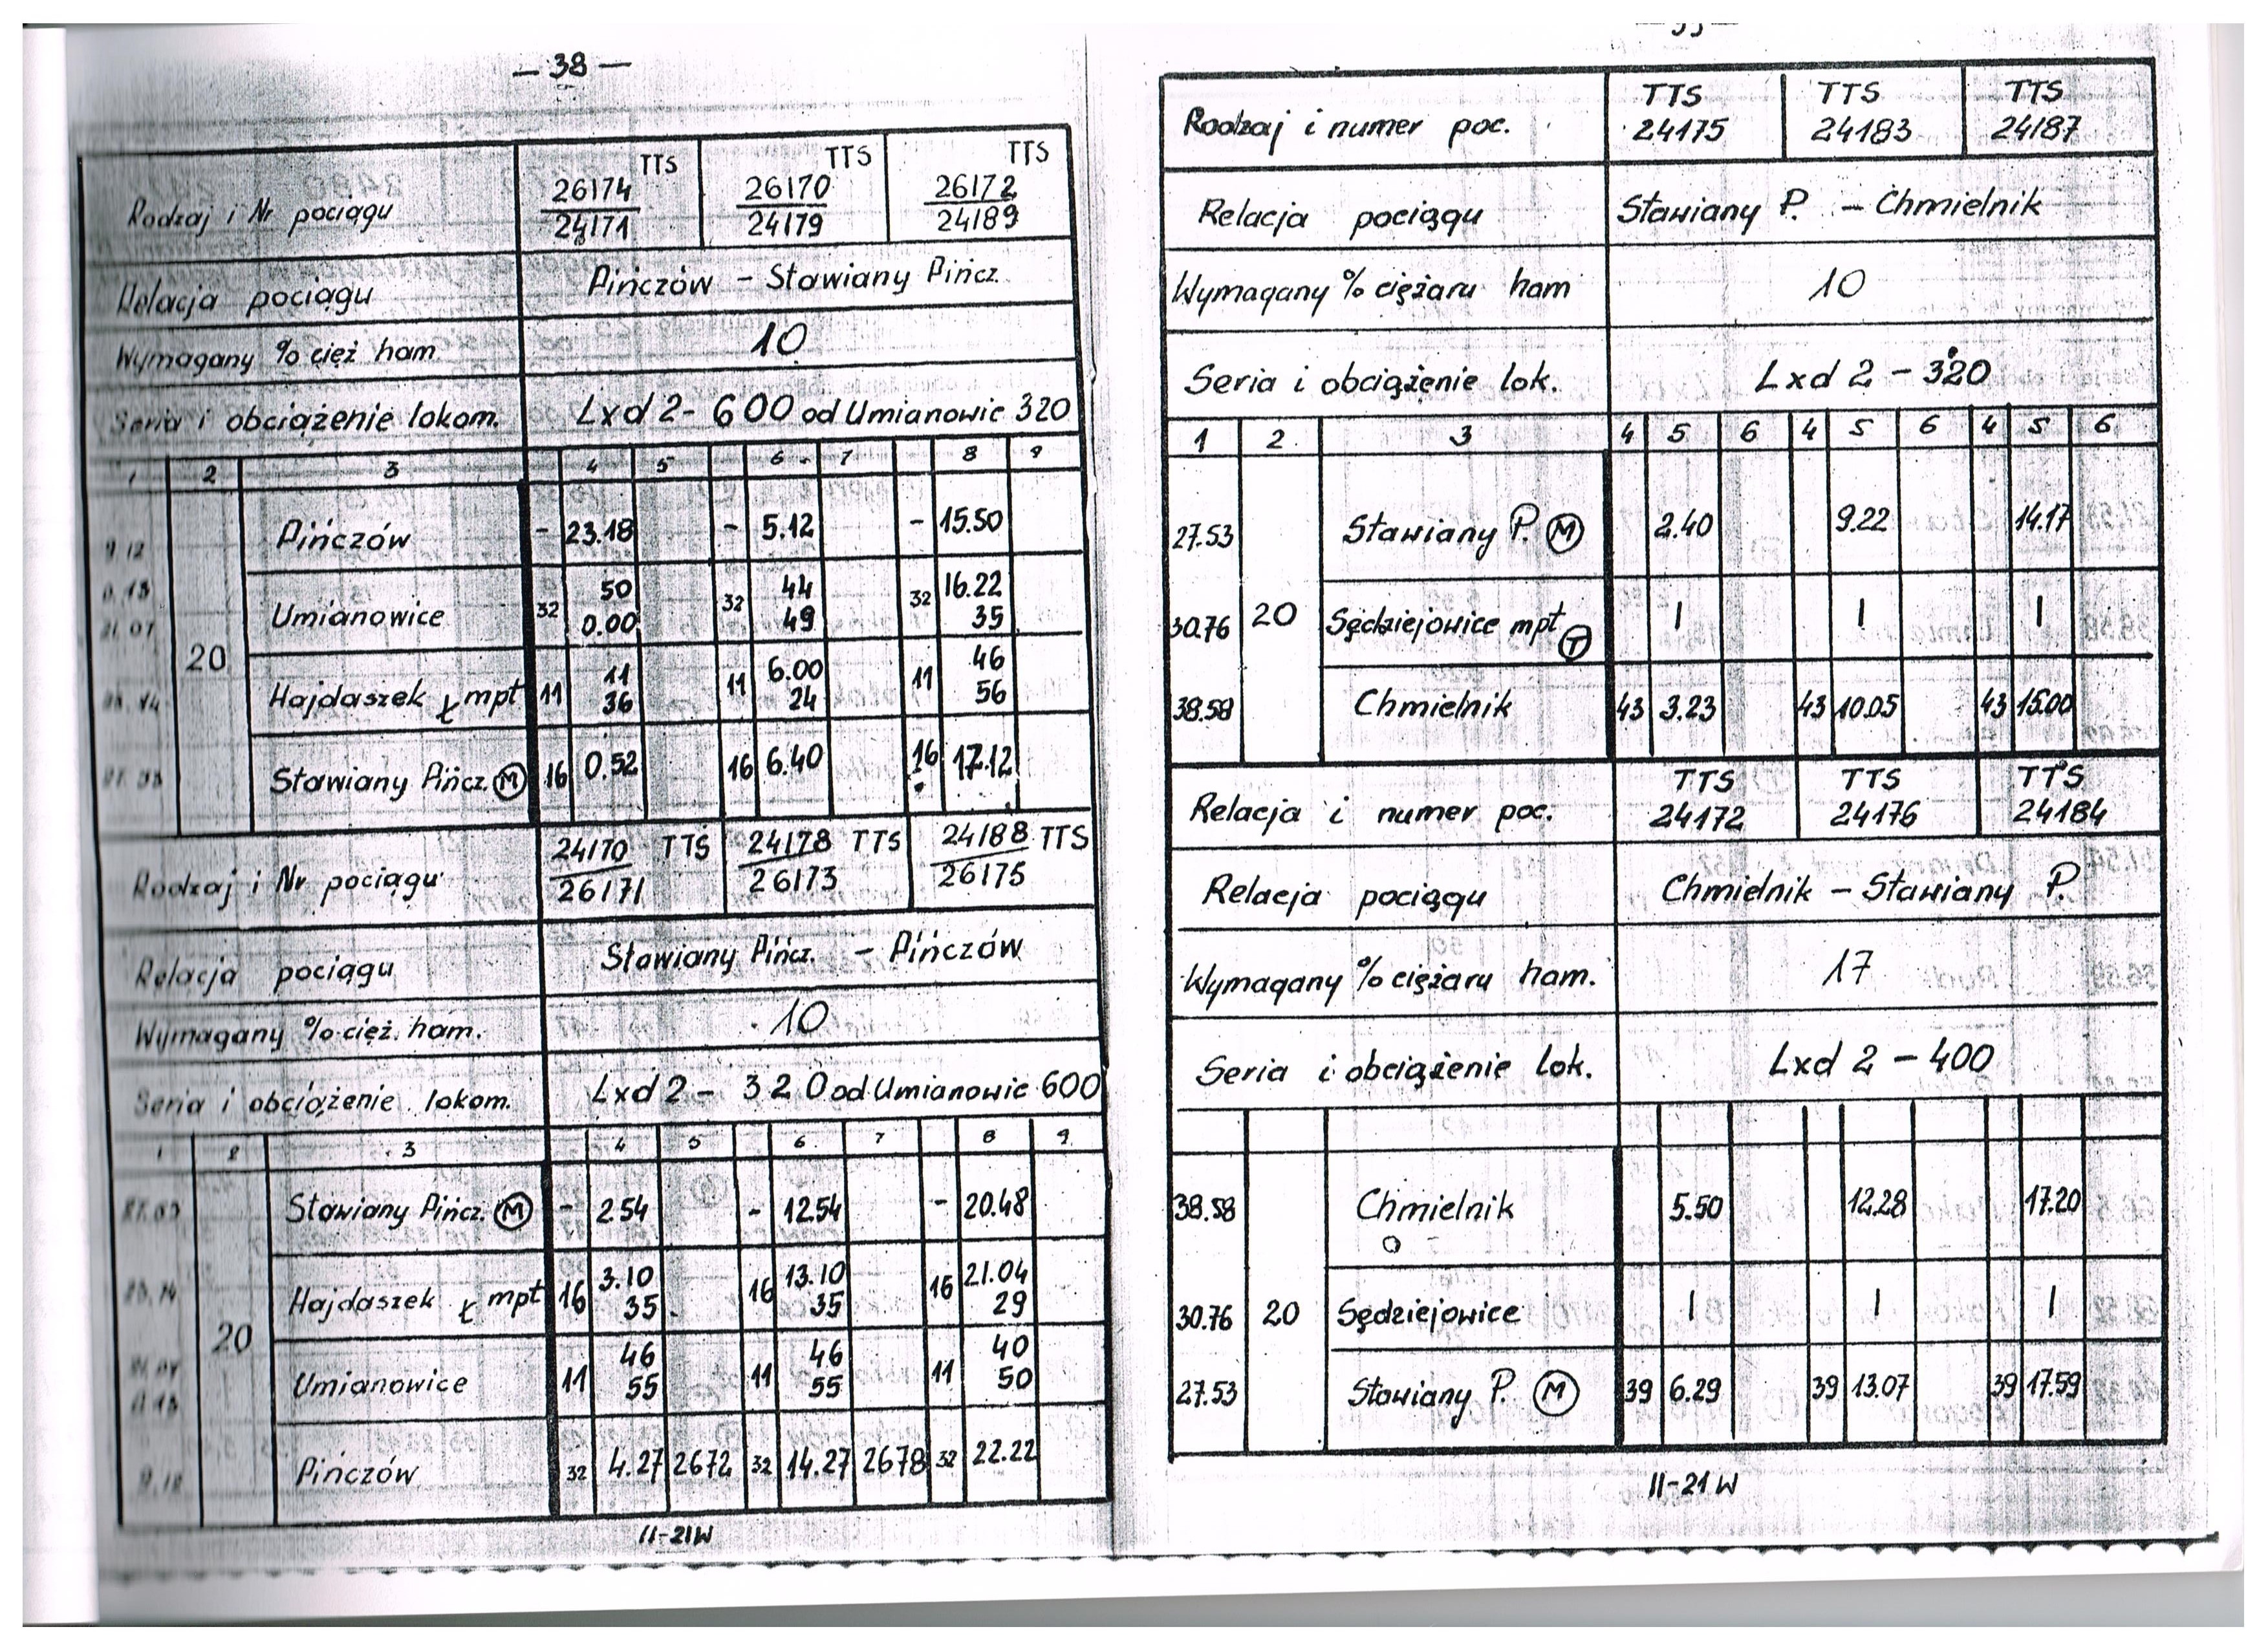 — 38 —
TTS TTS TTS
Rodzaj i Nr pociągu 26174 26170 26172
24171 24179 24189
Relacja pociągu Pińczów – Stawiany Pińcz.
Wymagany % cięż ham 10
Seria i obciążenie lokom. Lxd 2- 600 od Umianowic 320
1 2 3 4 5 6 7 8 9
Pińczów - 23.18 - 5.12 - 15.50
9.12
Umianowice 32 50 32 44 32 16.22
0.00 49 35
20
Hajdaszek ł mpt 11 11 11 6.00 11 46
36 24 56
Stawiany Pińcz. M 16 0.52 16 6.40 16 17.12
Rodzaj i Nr pociągu 24170 TTS 24178 TTS 24188 TTS
26171 26173 26175
Relacja pociągu Stawiany Pińcz. – Pińczów
Wymagany % cięż. ham. 10
Seria i obciążenie lokom. Lxd 2 – 320 od Umianowic 600
1 2 3 4 5 6 7 8 9
Stawiany Pińcz. M - 2.54 - 12.54 - 20.48
Hajdaszek ł mpt 16 3.10 16 13.10 16 21.04
35 35 29
20
Umianowice 11 46 11 46 11 40
55 55 50
Pińczów 32 4.27 2672 32 14.27 2678 32 22.22
II-21W
Rodzaj i numer poc. TTS TTS TTS
24175 24183 24187
Relacja pociągu Stawiany P. – Chmielnik
Wymagany % ciężaru ham 10
Seria i obciążenie lok. Lxd 2 – 320
1 2 3 4 5 6 4 5 6 4 5 6
27.53 Stawiany P. M 2.40 9.22 14.17
30.76 20 Sędziejowice mpt T | | |
38.58 Chmielnik 43 3.23 43 10.05 43 15.00
Relacja i numer poc. TTS TTS TTS
24172 24176 24184
Relacja pociągu Chmielnik – Stawiany P.
Wymagany % ciężaru ham. 17
Seria i obciążenie lok. Lxd 2 – 400
38.58 Chmielnik 5.50 12.28 17.20
30.76 20 Sędziejowice | | |
27.53 Stawiany P. M 39 6.29 39 13.07 39 17.59
II-21W